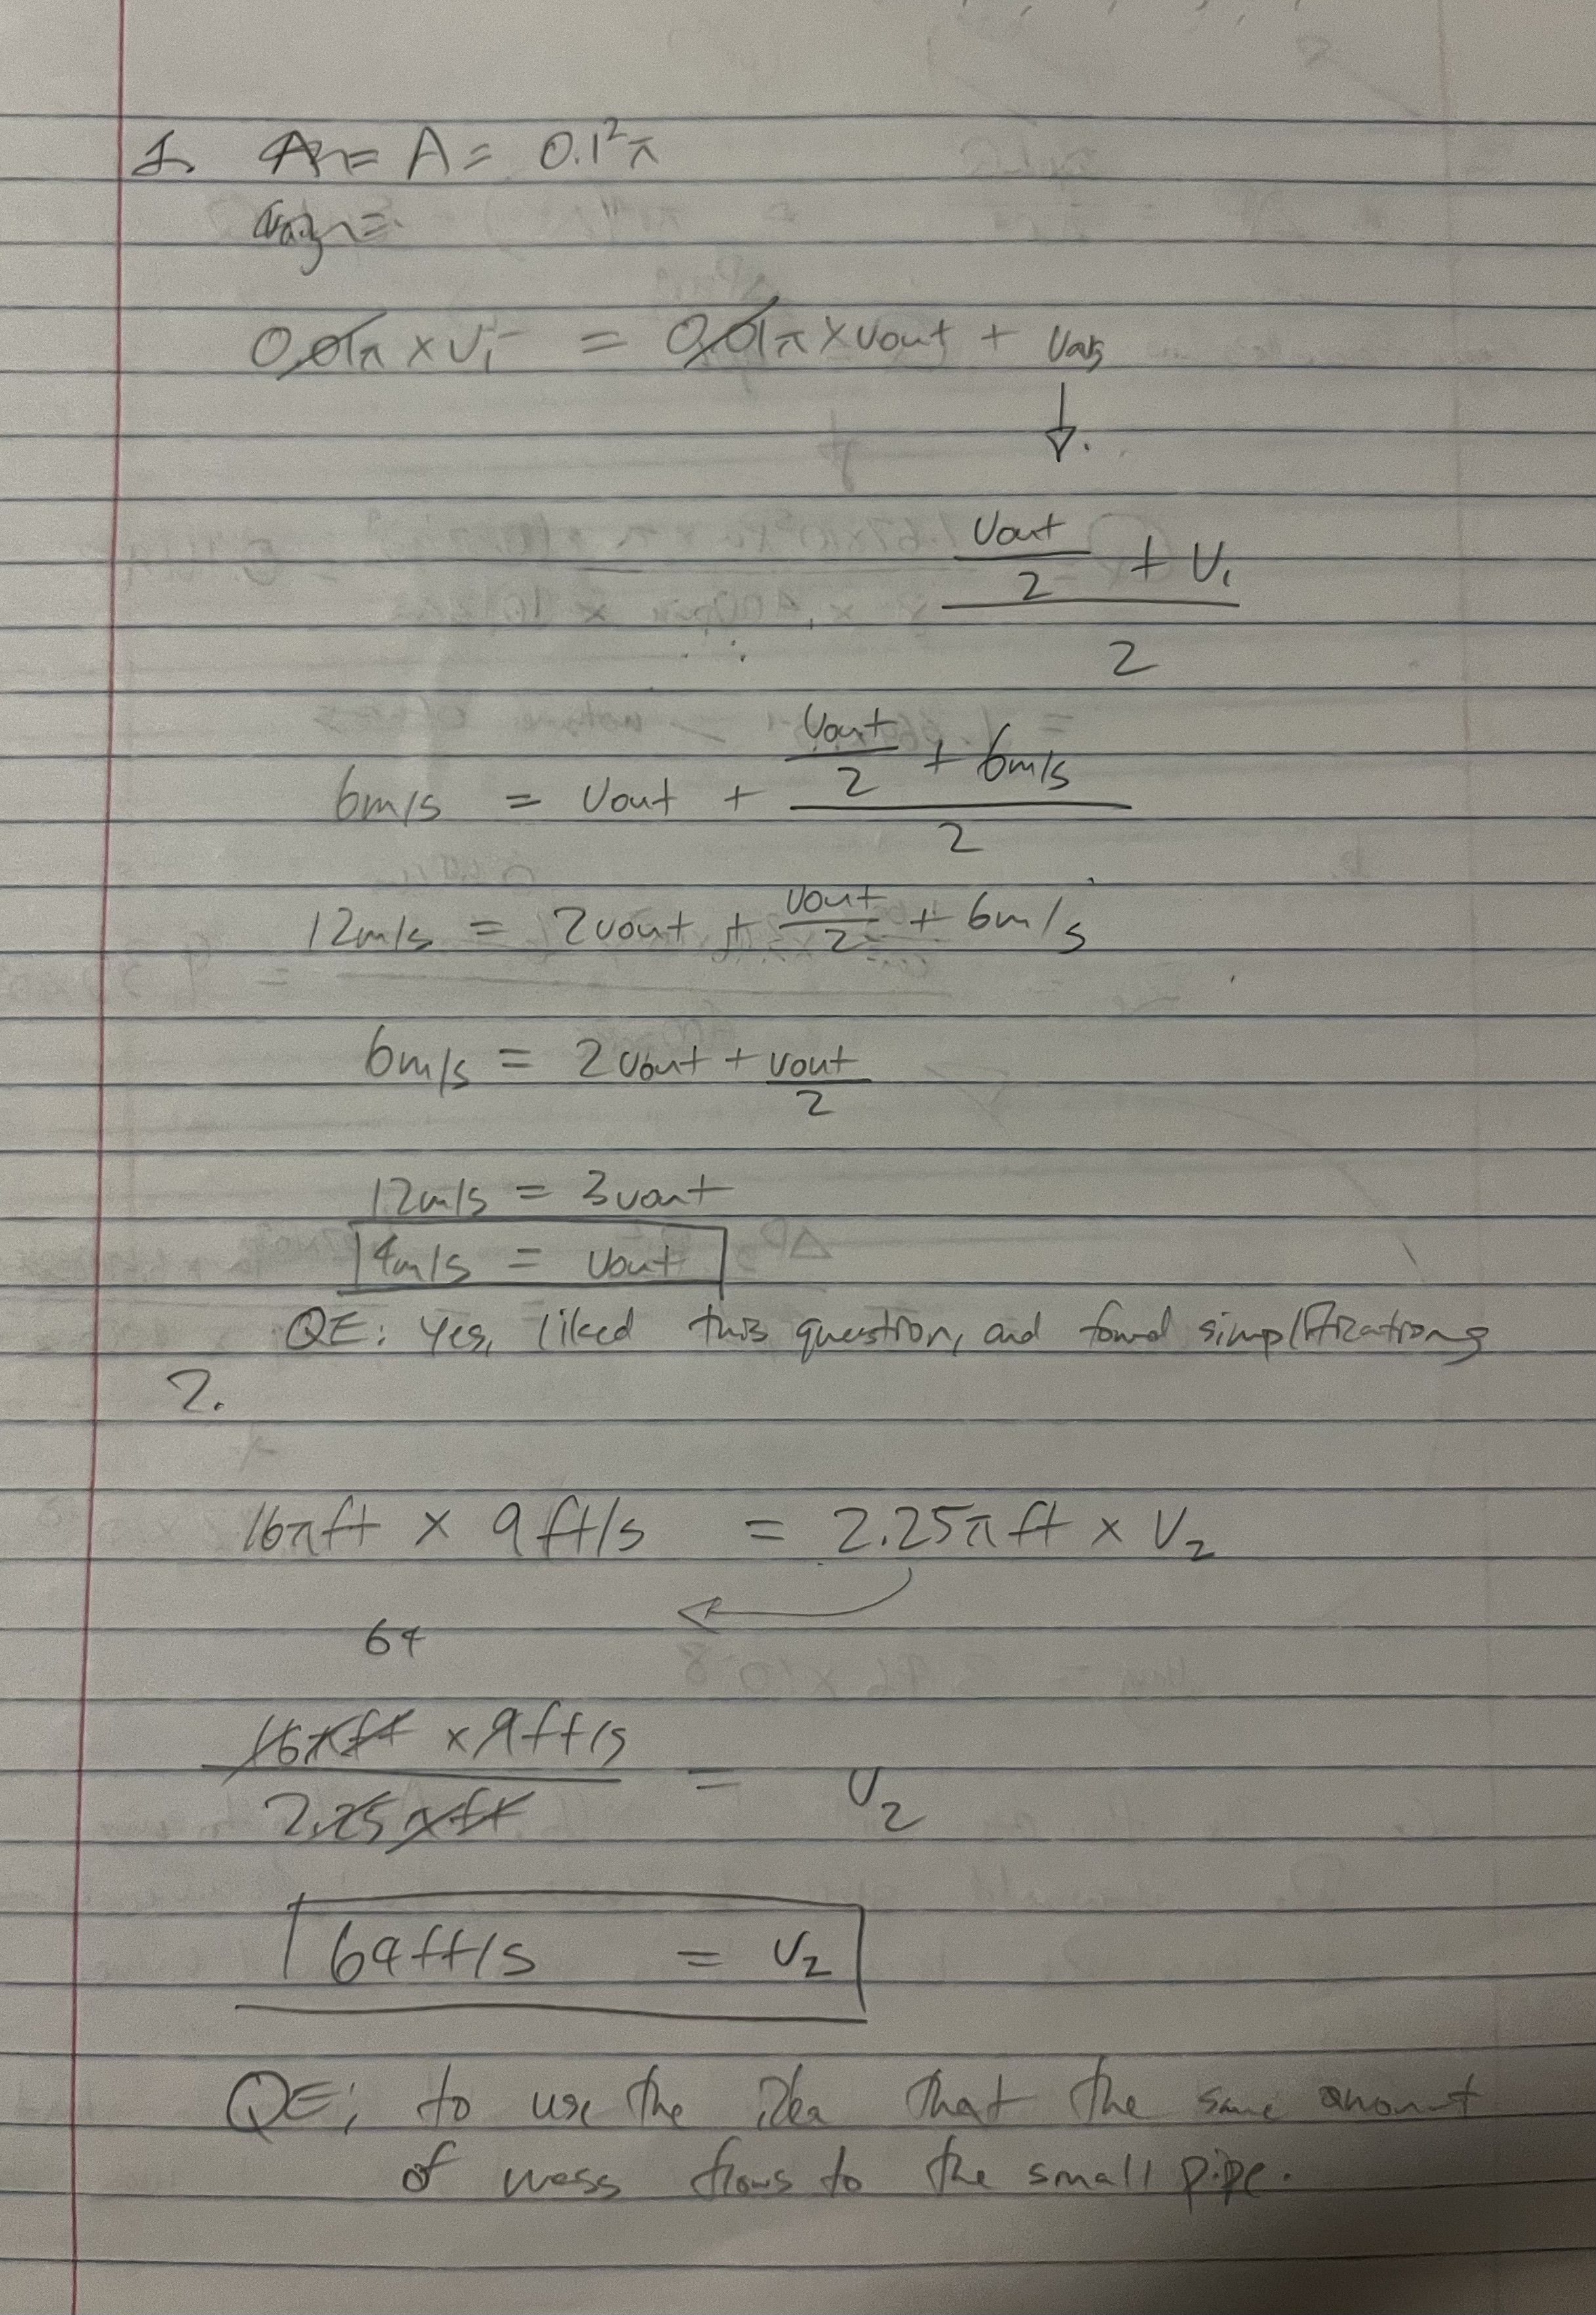 1. A = 0.1²π
0.01π × v₁ = 0.01π × vout + vavg
↓
vout/2 + v₁
2
6m/s = vout + (vout/2 + 6m/s)/2
12m/s = 2vout + vout/2 + 6m/s
6m/s = 2vout + vout/2
12m/s = 3vout
4m/s = vout
QE: Yes, liked this question, and found simplifications
2.
16πft × 9ft/s = 2.25πft × v₂
64
16πft × 9ft/s / 2.25πft = v₂
64ft/s = v₂
QE: to use the idea that the same amount
of mass flows to the small pipe.